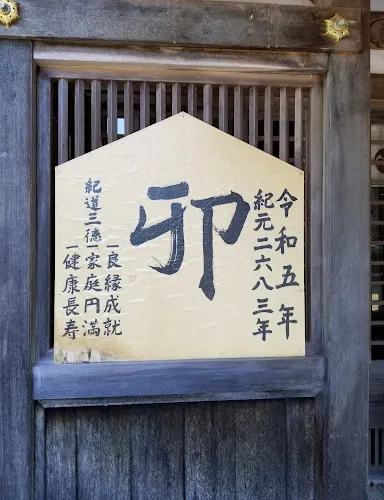 令和五年
紀元二六八三年
卯
一良縁成就
紀道三徳一家庭円満
一健康長寿